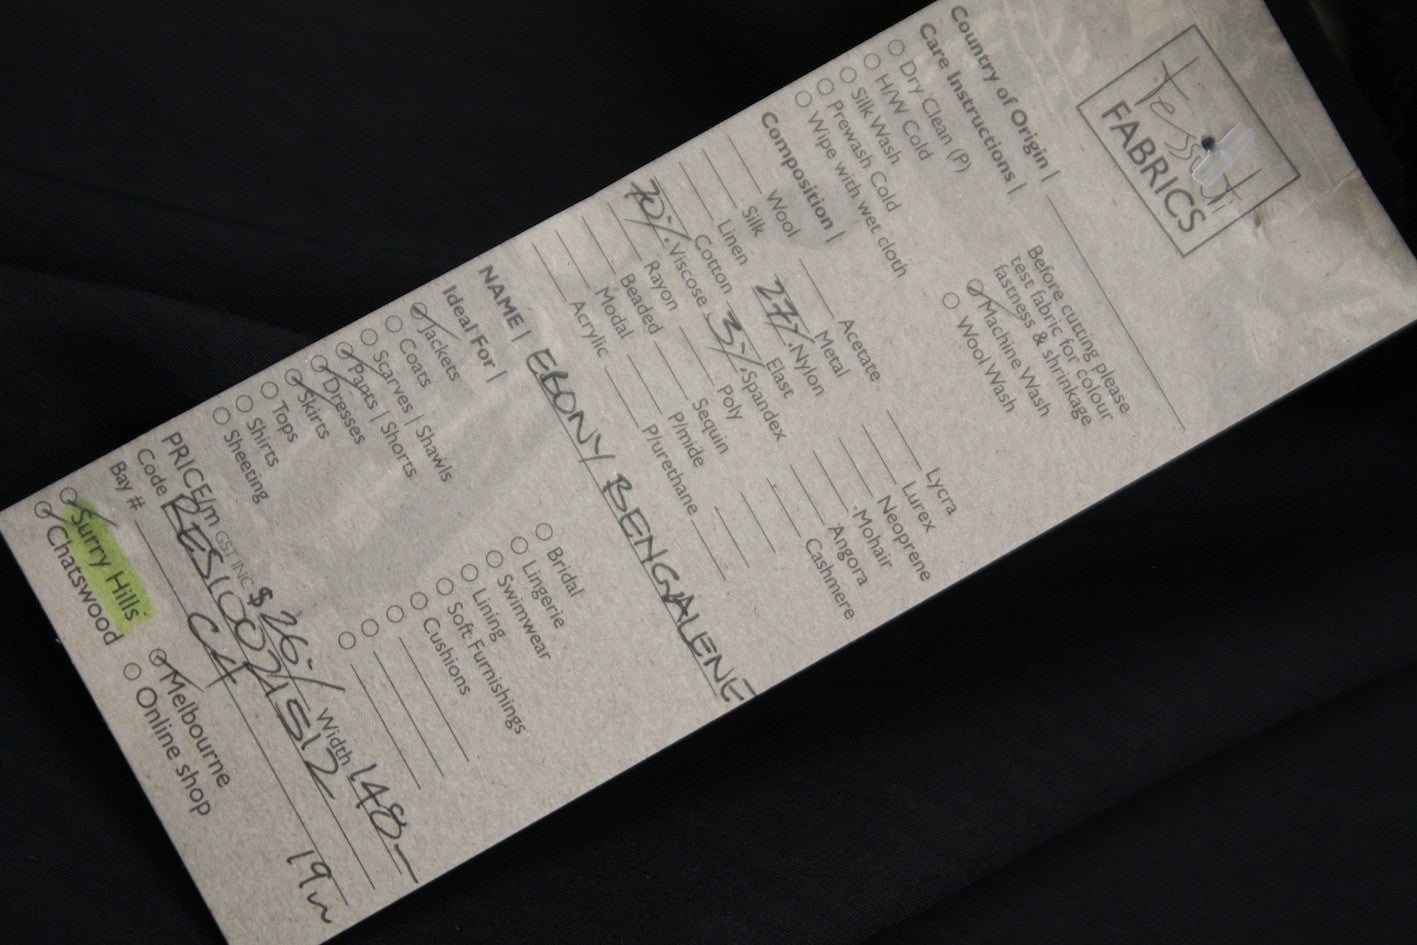 Tessuti
FABRICS
Country of Origin |
Care Instructions |
Dry Clean (P)
H/W Cold
Silk Wash
Prewash Cold
Wipe with wet cloth
Before cutting please
test fabric for colour
fastness & shrinkage
Machine Wash
Wool Wash
Composition |
Wool Acetate Lycra
Silk Metal Lurex
Linen 27%. Nylon Neoprene
Cotton Elast Mohair
70%. Viscose 3%. Spandex Angora
Rayon Poly Cashmere
Beaded Sequin
Modal P/mide
Acrylic P/urethane
NAME | EBONY BENGALENE
Ideal For |
Jackets
Coats
Scarves | Shawls
Pants | Shorts
Dresses
Skirts
Tops
Shirts
Sheeting
Bridal
Lingerie
Swimwear
Lining
Soft Furnishings
Cushions
PRICE/m GST INC $26-/ Width 148-
Code RES10021512
Bay # C4 19m
Surry Hills Melbourne
Chatswood Online shop